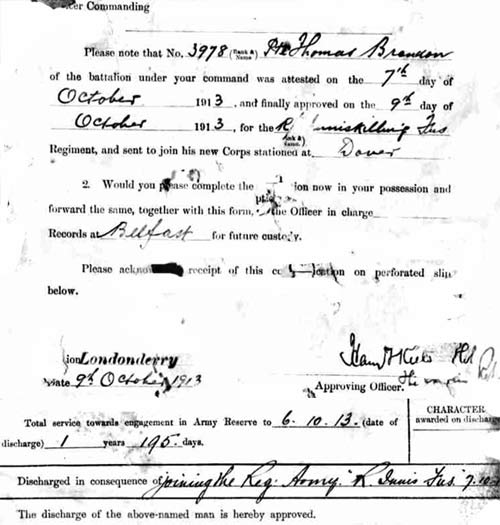 Commanding
Please note that No. 3978 (Rank & Name) Pte Thomas Brandon
of the battalion under your command was attested on the 7th day of
October 1913, and finally approved on the 9th day of
October 1913, for the R Inniskilling Fus
Regiment, and sent to join his new Corps stationed at Dover
2. Would you please complete the ion now in your possession and
forward the same, together with this form, the Officer in charge
Records at Belfast for future custody.
Please receipt of this on perforated slip
below.
ion Londonderry
Date 9th October 1913
Approving Officer.
Total service towards engagement in Army Reserve to 6.10.13. (date of
discharge) 1 years 195 days.
CHARACTER
awarded on discharge
Discharged in consequence of joining the Reg. Army "R. Innis Fus" 7.10.
The discharge of the above-named man is hereby approved.